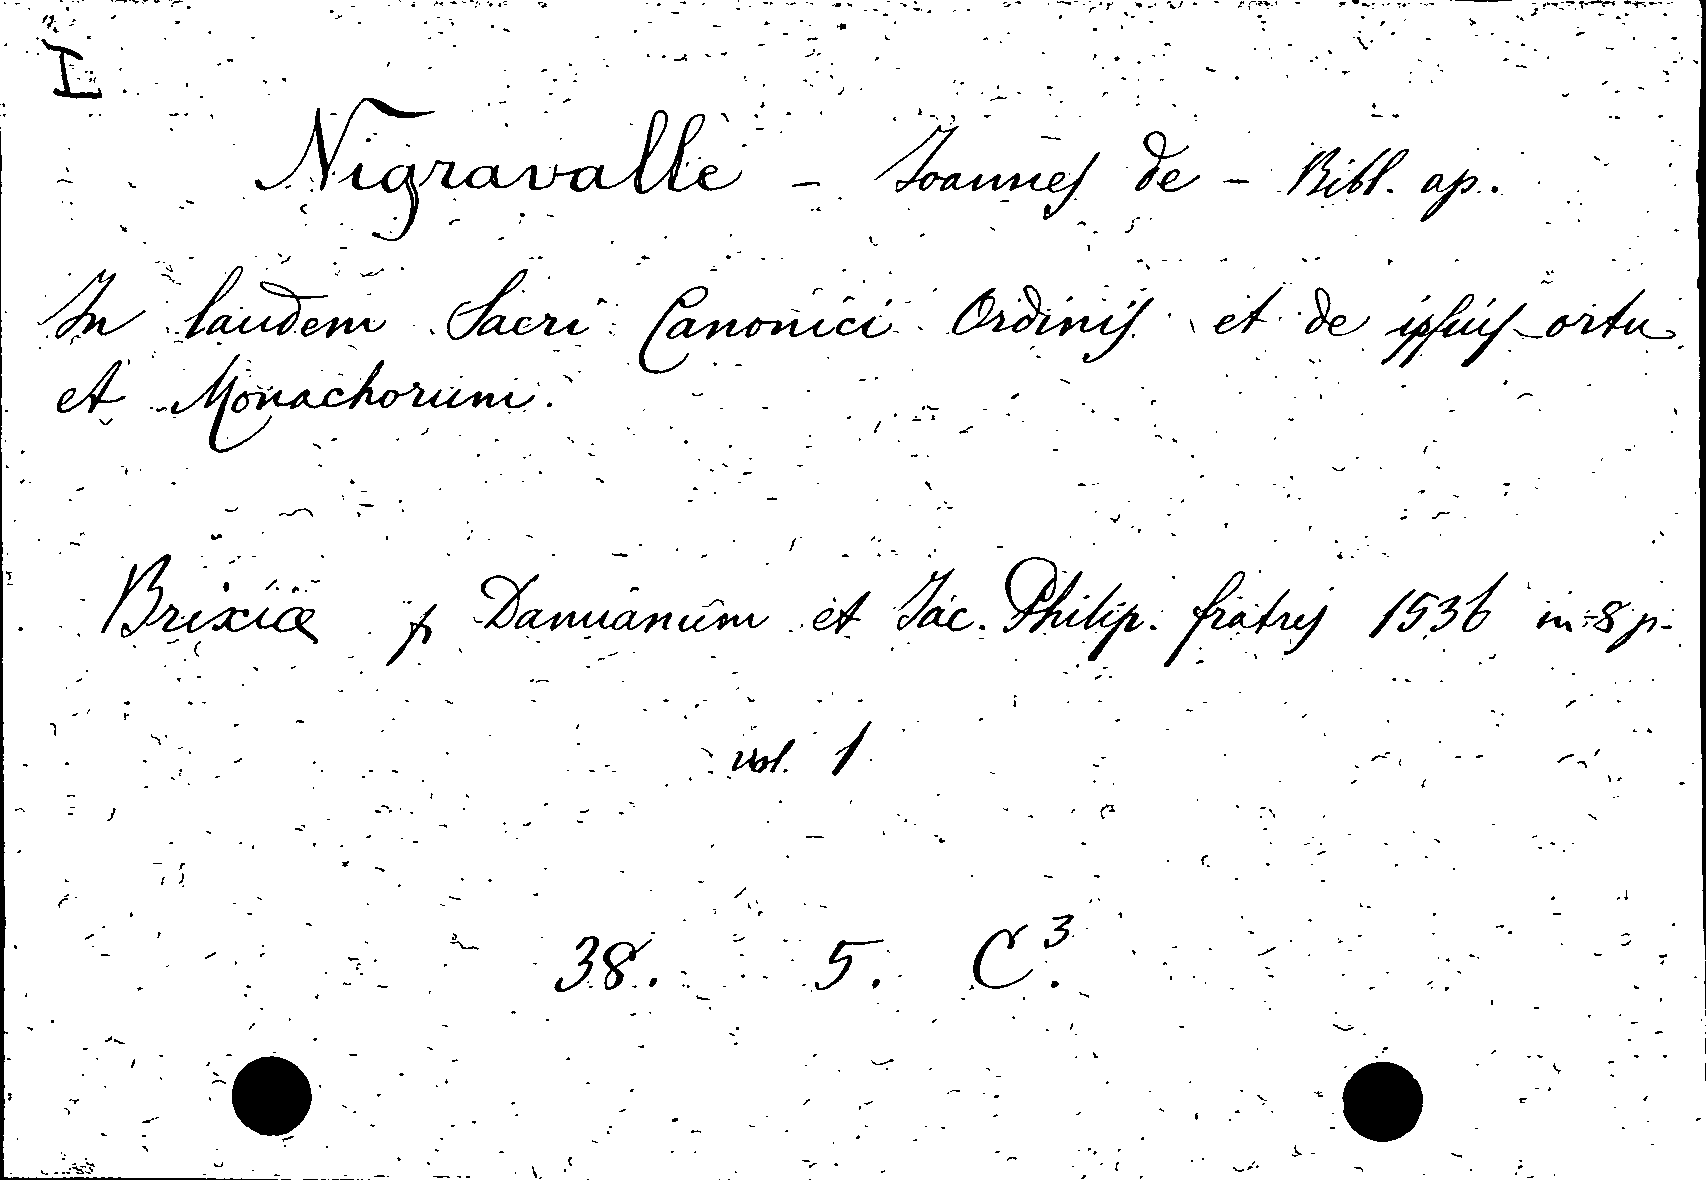 I
Nigravalle - Joannes de - Bibl. ap.
In laudem Sacri Canonici Ordinis et de ipsius ortu
et Monachorum.
Brixiæ p Damianum et Jac. Philip. fratres 1536 in-8 p.
vol. 1
38. 5. C³.